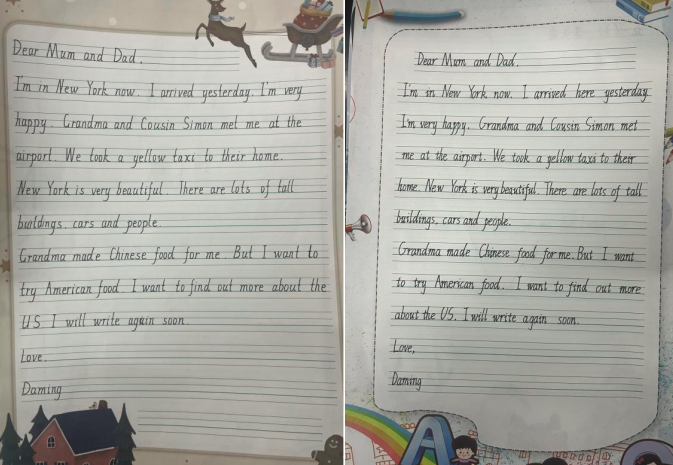 Dear Mum and Dad.
I'm in New York now. I arrived yesterday. I'm very
happy. Grandma and Cousin Simon met me at the
airport. We took a yellow taxi to their home.
New York is very beautiful. There are lots of tall
buildings, cars and people.
Grandma made Chinese food for me. But I want to
try American food. I want to find out more about the
US. I will write again soon.
Love.
Daming
Dear Mum and Dad.
I'm in New York now. I arrived here yesterday
I'm very happy. Grandma and Cousin Simon met
me at the airport. We took a yellow taxi to their
home. New York is very beautiful. There are lots of tall
buildings, cars and people.
Grandma made Chinese food for me. But I want
to try American food. I want to find out more
about the US. I will write again soon.
Love,
Daming
A